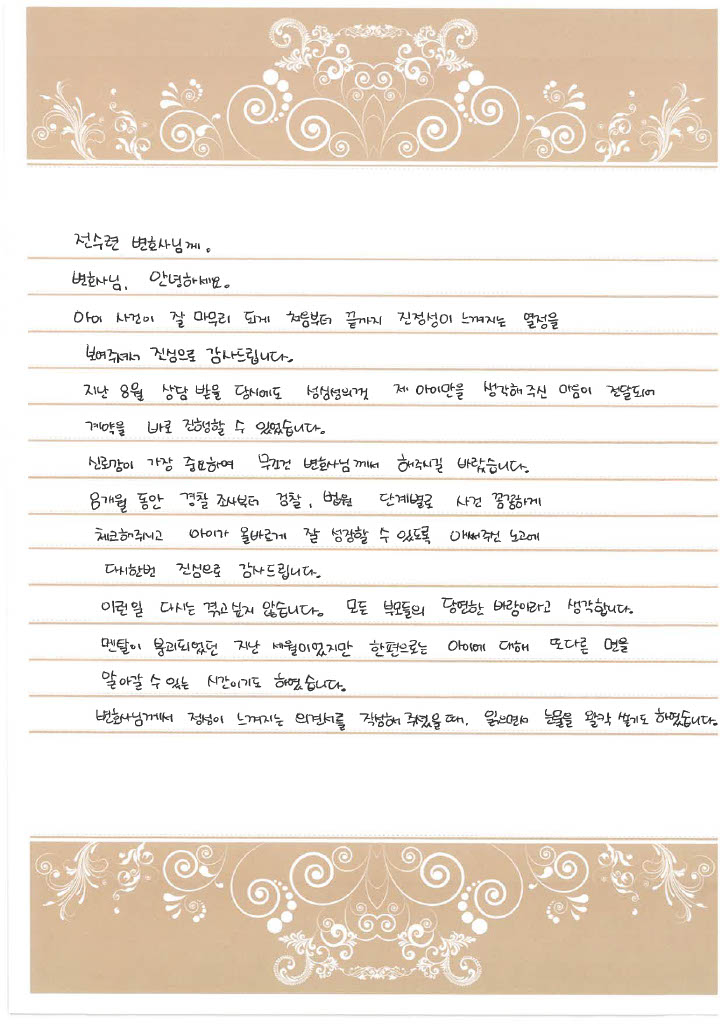 전수련 변호사님께.
변호사님, 안녕하세요.
아이 사건이 잘 마무리 되게 처음부터 끝까지 진정성이 느껴지는 열정을
보여주셔서 진심으로 감사드립니다.
지난 8월 상담 받을 당시에도 성심성의껏 제 아이만을 생각해 주신 마음이 전달되어
계약을 바로 진행할 수 있었습니다.
신뢰감이 가장 중요하여 무조건 변호사님께서 해주시길 바랐습니다.
8개월 동안 경찰 조사부터 검찰, 법원 단계별로 사건 꼼꼼하게
체크해주시고 아이가 올바르게 잘 성장할 수 있도록 애써주신 노고에
다시한번 진심으로 감사드립니다.
이런일 다시는 겪고싶지 않습니다. 모든 부모들의 당연한 바람이라고 생각합니다.
멘탈이 붕괴되었던 지난 세월이었지만 한편으로는 아이에 대해 또다른 면을
알아갈 수 있는 시간이기도 하였습니다.
변호사님께서 정성이 느껴지는 의견서를 작성해 주셨을때, 읽으면서 눈물을 왈칵 쏟기도 하였습니다.